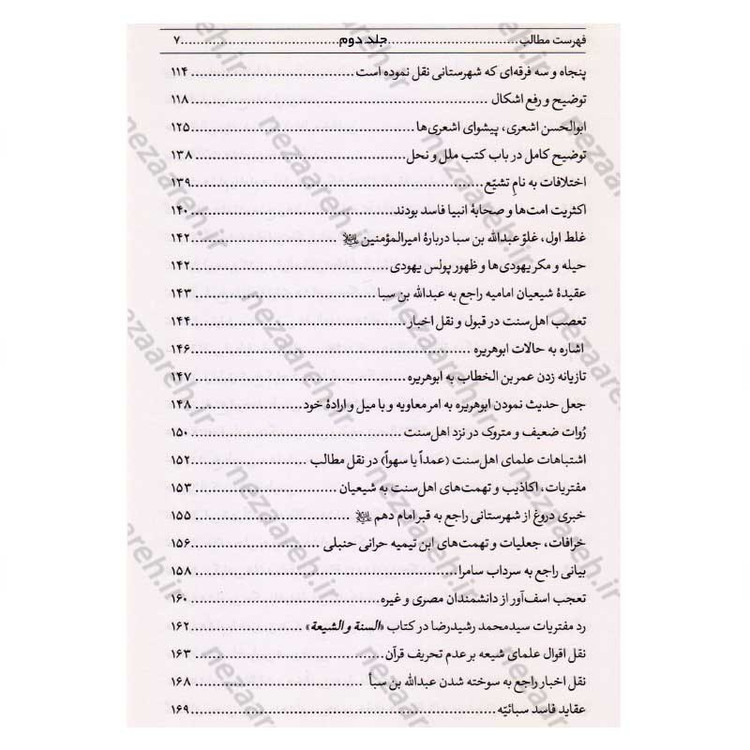 فهرست مطالب ........ جلد دوم ........ ۷
پنجاه و سه فرقه‌ای که شهرستانی نقل نموده است ........ ۱۱۴
توضیح و رفع اشکال ........ ۱۱۸
ابوالحسن اشعری، پیشوای اشعری‌ها ........ ۱۲۵
توضیح کامل در باب کتب ملل و نحل ........ ۱۳۸
اختلافات به نامِ تشیّع ........ ۱۳۹
اکثریت امت‌ها و صحابهٔ انبیا فاسد بودند ........ ۱۴۰
غلط اول، غلوّ عبدالله بن سبا دربارهٔ امیرالمؤمنین ........ ۱۴۲
حیله و مکر یهودی‌ها و ظهور پولس یهودی ........ ۱۴۲
عقیدهٔ شیعیان امامیه راجع به عبدالله بن سبا ........ ۱۴۳
تعصب اهل‌سنت در قبول و نقل اخبار ........ ۱۴۴
اشاره به حالات ابوهریره ........ ۱۴۶
تازیانه زدن عمربن الخطاب به ابوهریره ........ ۱۴۷
جعل حدیث نمودن ابوهریره به امر معاویه و با میل و ارادهٔ خود ........ ۱۴۸
رُوات ضعیف و متروک در نزد اهل‌سنت ........ ۱۵۰
اشتباهات علمای اهل‌سنت (عمداً یا سهواً) در نقل مطالب ........ ۱۵۲
مفتریات، اکاذیب و تهمت‌های اهل‌سنت به شیعیان ........ ۱۵۳
خبری دروغ از شهرستانی راجع به قبر امام دهم ........ ۱۵۵
خرافات، جعلیات و تهمت‌های ابن تیمیه حرانی حنبلی ........ ۱۵۶
بیانی راجع به سرداب سامرا ........ ۱۵۸
تعجب اسف‌آور از دانشمندان مصری و غیره ........ ۱۶۰
رد مفتریات سیدمحمد رشیدرضا در کتاب «السنة و الشیعة» ........ ۱۶۲
نقل اقوال علمای شیعه بر عدم تحریف قرآن ........ ۱۶۳
نقل اخبار راجع به سوخته شدن عبدالله بن سبأ ........ ۱۶۸
عقاید فاسد سبائیّه ........ ۱۶۹
nezaareh.ir